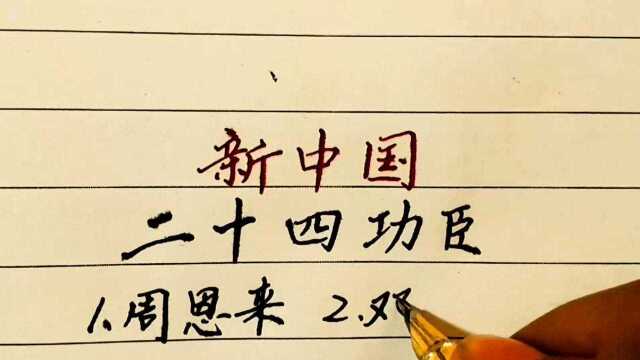 新中国
二十四功臣
1.周恩来 2.邓